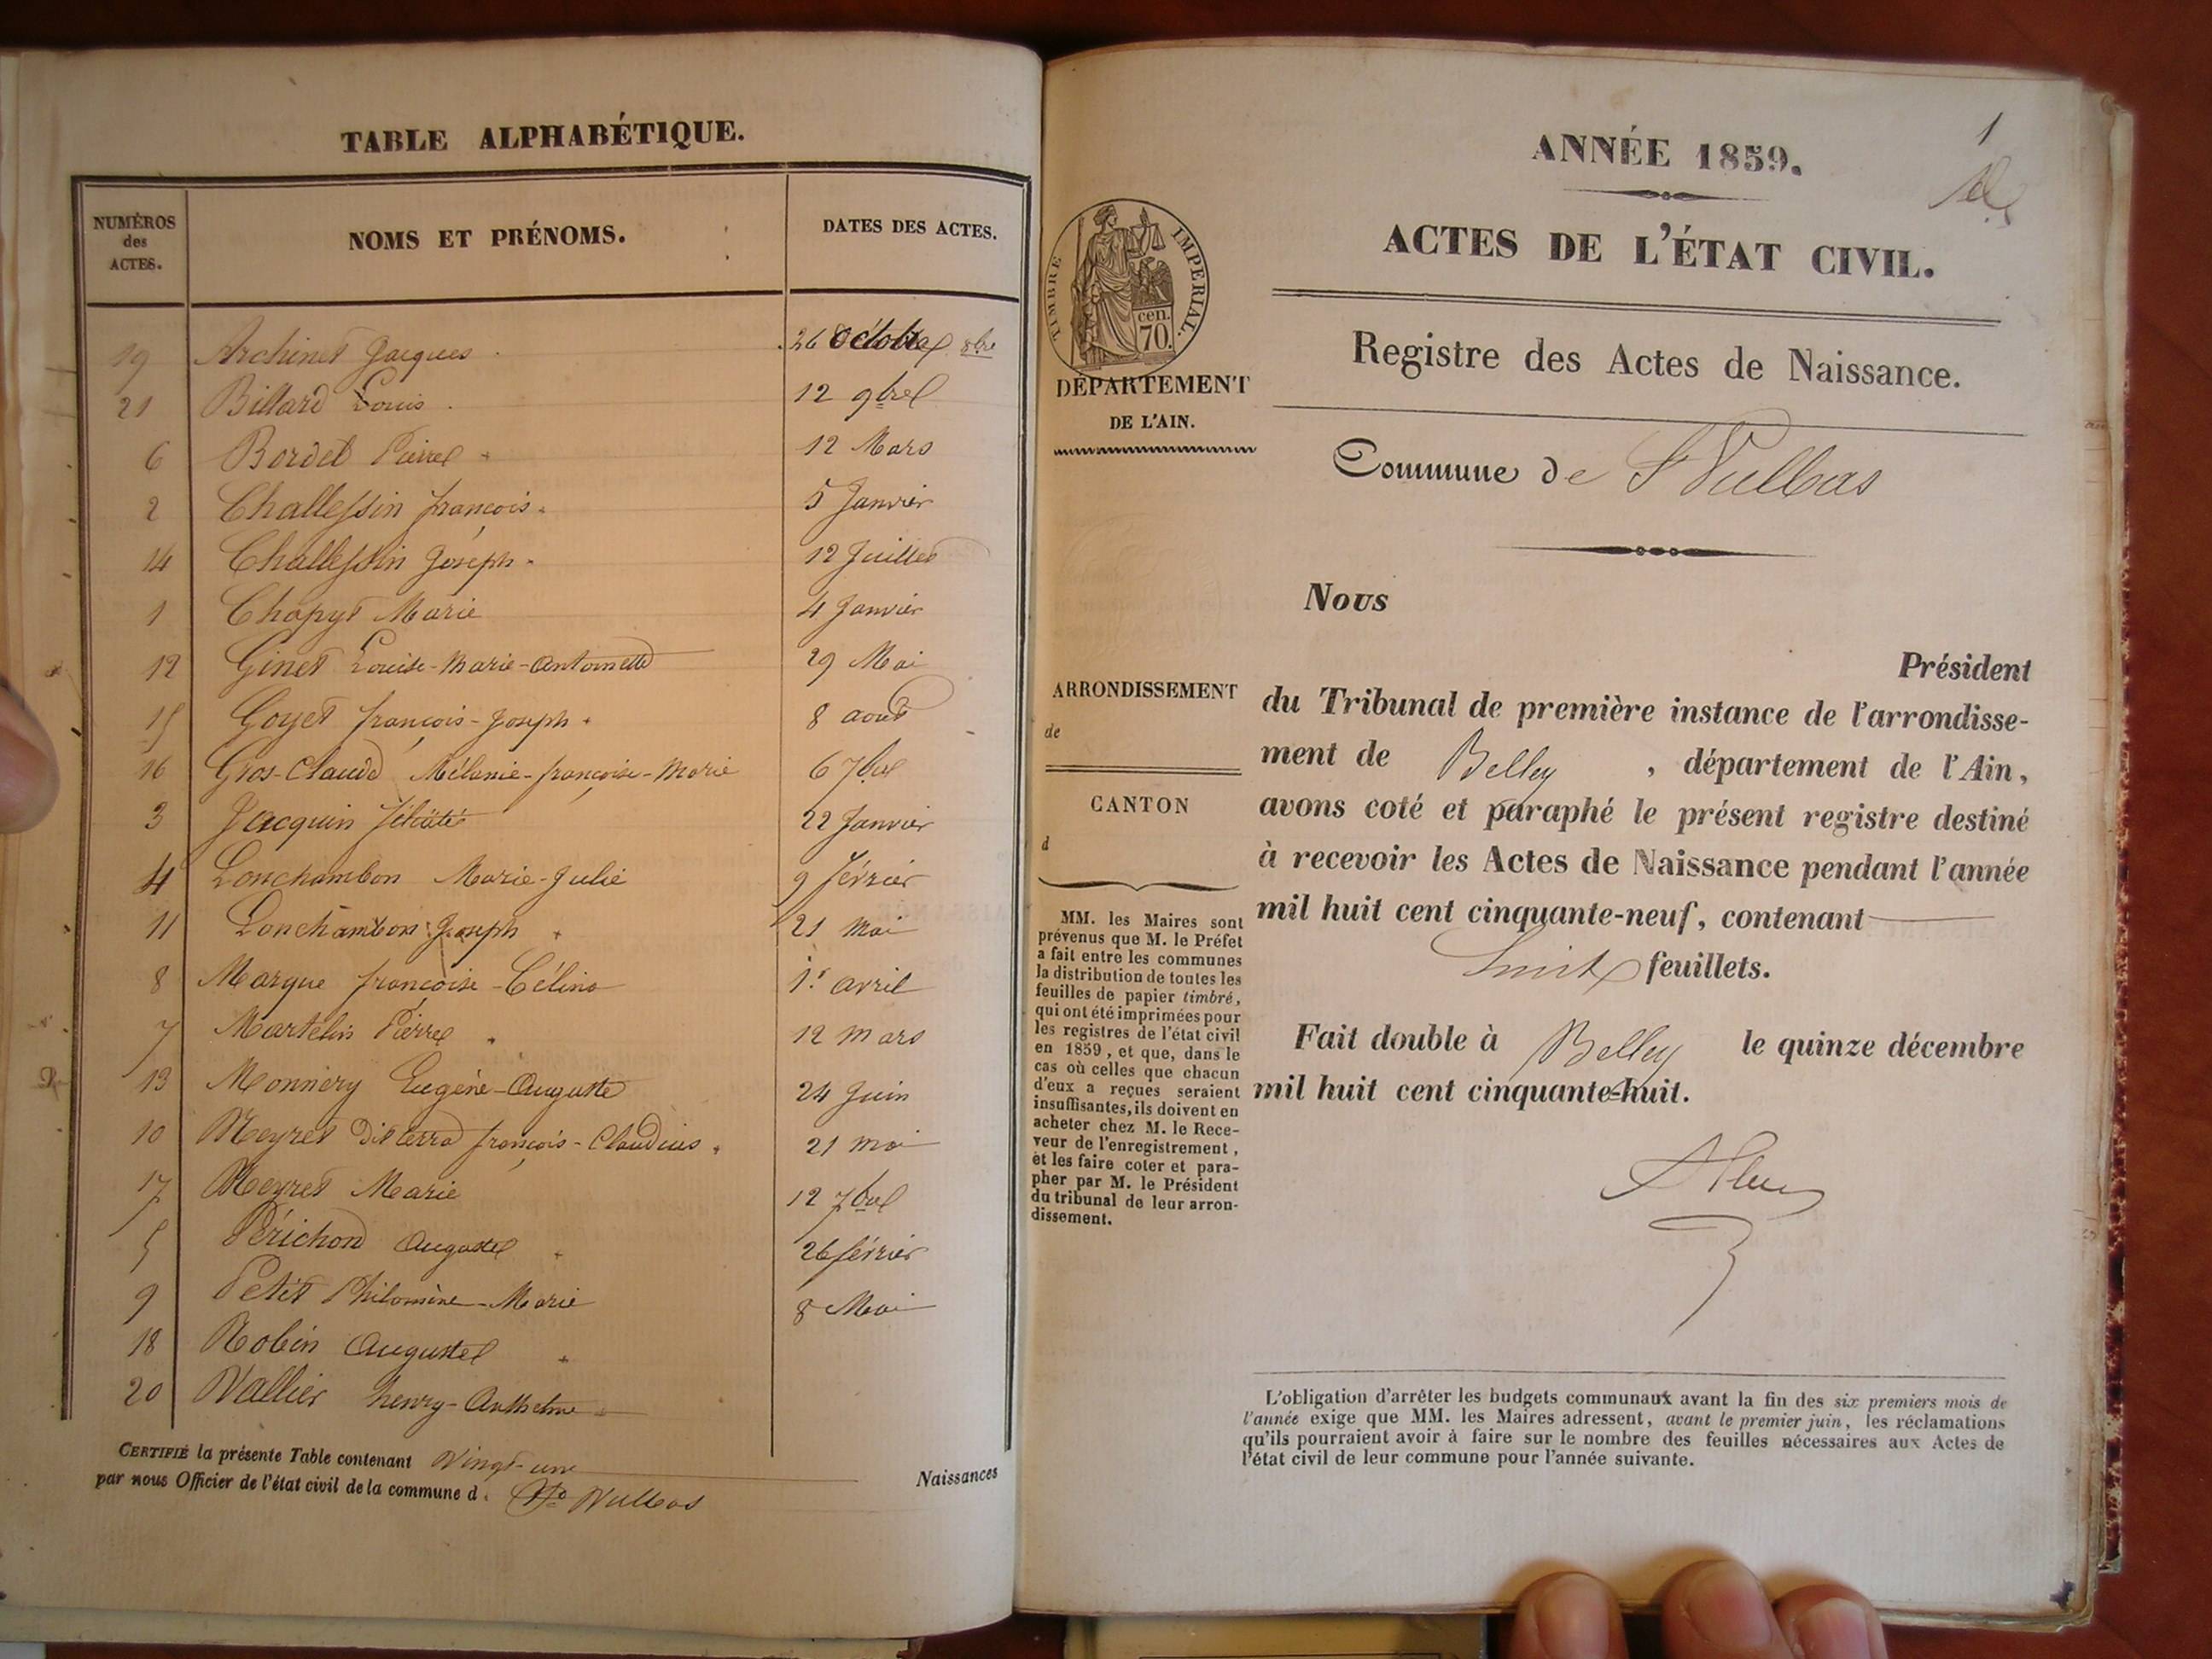 TABLE ALPHABÉTIQUE.
NUMÉROS des ACTES. NOMS ET PRÉNOMS. DATES DES ACTES.
19 Archinet Jacques 26 Octobre 8bre
21 Billard Louis 12 9bre
6 Bordet Pierre 12 Mars
2 Challessin françois 5 Janvier
14 Challessin Joseph 12 Juillet
1 Chapyt Marie 4 Janvier
12 Ginet Louise-Marie-Antoinette 29 Mai
15 Goyet françois-Joseph 8 aout
16 Gros-Claude Mélanie-françoise-Marie 6 7bre
3 Jacquin félicité 22 Janvier
4 Lonchambon Marie-Julie 9 février
11 Lonchambon Joseph 21 Mai
8 Margue françoise-Célina 1er avril
7 Martelin Pierre 12 mars
13 Monnery Eugène-Auguste 24 Juin
10 Meyret dit terra françois-Claudius 21 mai
17 Meyret Marie 12 7bre
5 Périchon Auguste 26 février
9 Petit Philomène-Marie 8 Mai
18 Robin Auguste
20 Vallier henry-Anthelme
CERTIFIÉ la présente Table contenant Vingt-une Naissances
par nous Officier de l'état civil de la commune d. St Vulbas
1
ANNÉE 1859.
ACTES DE L'ÉTAT CIVIL.
TIMBRE IMPERIAL.
cen.
70.
DÉPARTEMENT
DE L'AIN.
Registre des Actes de Naissance.
Commune de St Vulbas
Nous
Président
du Tribunal de première instance de l'arrondisse-
ment de Belley, département de l'Ain,
avons coté et paraphé le présent registre destiné
à recevoir les Actes de Naissance pendant l'année
mil huit cent cinquante-neuf, contenant
huit feuillets.
Fait double à Belley le quinze décembre
mil huit cent cinquante-huit.
ARRONDISSEMENT
de
CANTON
d
MM. les Maires sont
prévenus que M. le Préfet
a fait entre les communes
la distribution de toutes les
feuilles de papier timbré,
qui ont été imprimées pour
les registres de l'état civil
en 1859, et que, dans le
cas où celles que chacun
d'eux a reçues seraient
insuffisantes, ils doivent en
acheter chez M. le Rece-
veur de l'enregistrement,
et les faire coter et para-
pher par M. le Président
du tribunal de leur arron-
dissement.
L'obligation d'arrêter les budgets communaux avant la fin des six premiers mois de
l'année exige que MM. les Maires adressent, avant le premier juin, les réclamations
qu'ils pourraient avoir à faire sur le nombre des feuilles nécessaires aux Actes de
l'état civil de leur commune pour l'année suivante.